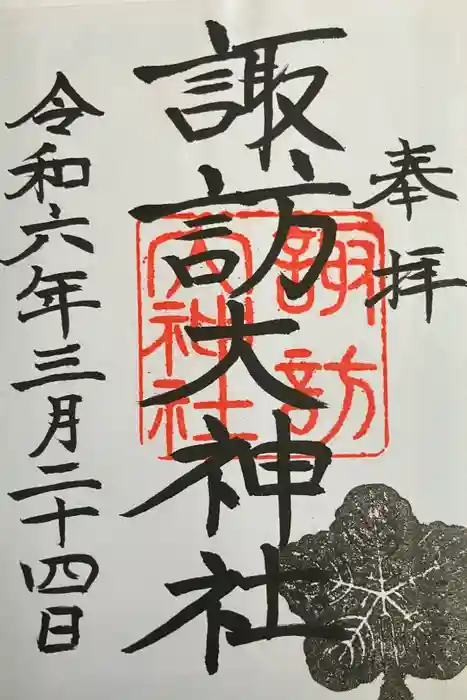 奉拝
諏訪大神社
諏訪
大神社
令和六年三月二十四日